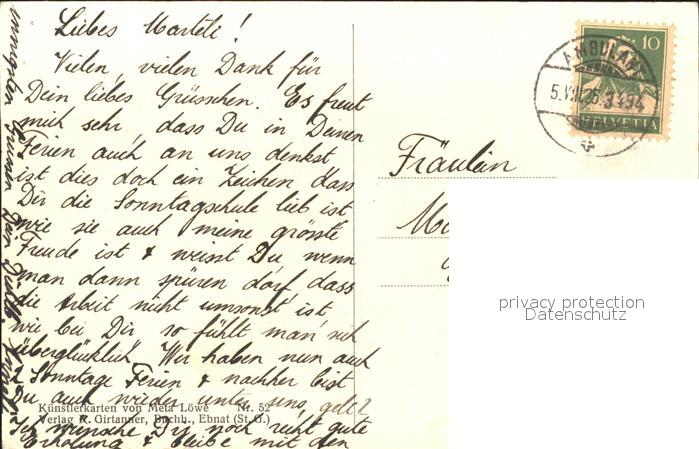 Liebes Marteli!
Vielen, vielen Dank für
Dein liebes Grüsschen. Es freut
mich sehr, dass Du in Deinen
Ferien auch an uns denkst
ist dies doch ein Zeichen, dass
Dir die Sonntagschule lieb ist
wie sie auch meine grösste
Freude ist & weisst Du, wenn
man dann spüren darf dass
die Arbeit nicht umsonst ist
wie bei Dir so fühlt man sich
überglücklich. Wir haben nun auch
2 Sonntage Ferien & nachher bist
Du auch wieder unter uns, gelt?
Ich wünsche Dir noch recht gute
Erholung & bleibe mit den
Künstlerkarten von Meta Löwe Nr. 52
Verlag R. Girtanner, Buchh., Ebnat (St. G.)
10
HELVETIA
AMBULANT
Fräulein
privacy protection
Datenschutz